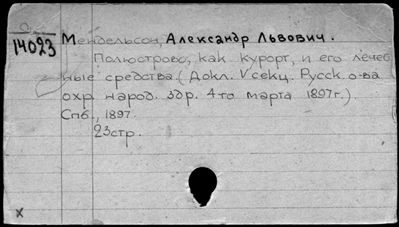 14023
Мендельсон, Александр Львович.
Полюстрово, как курорт, и его лечеб
ные средства. (Докл. V секц. Русск. о-ва
охр. народ. здр. 4-го марта 1897 г.).
Спб., 1897.
23 стр.
x